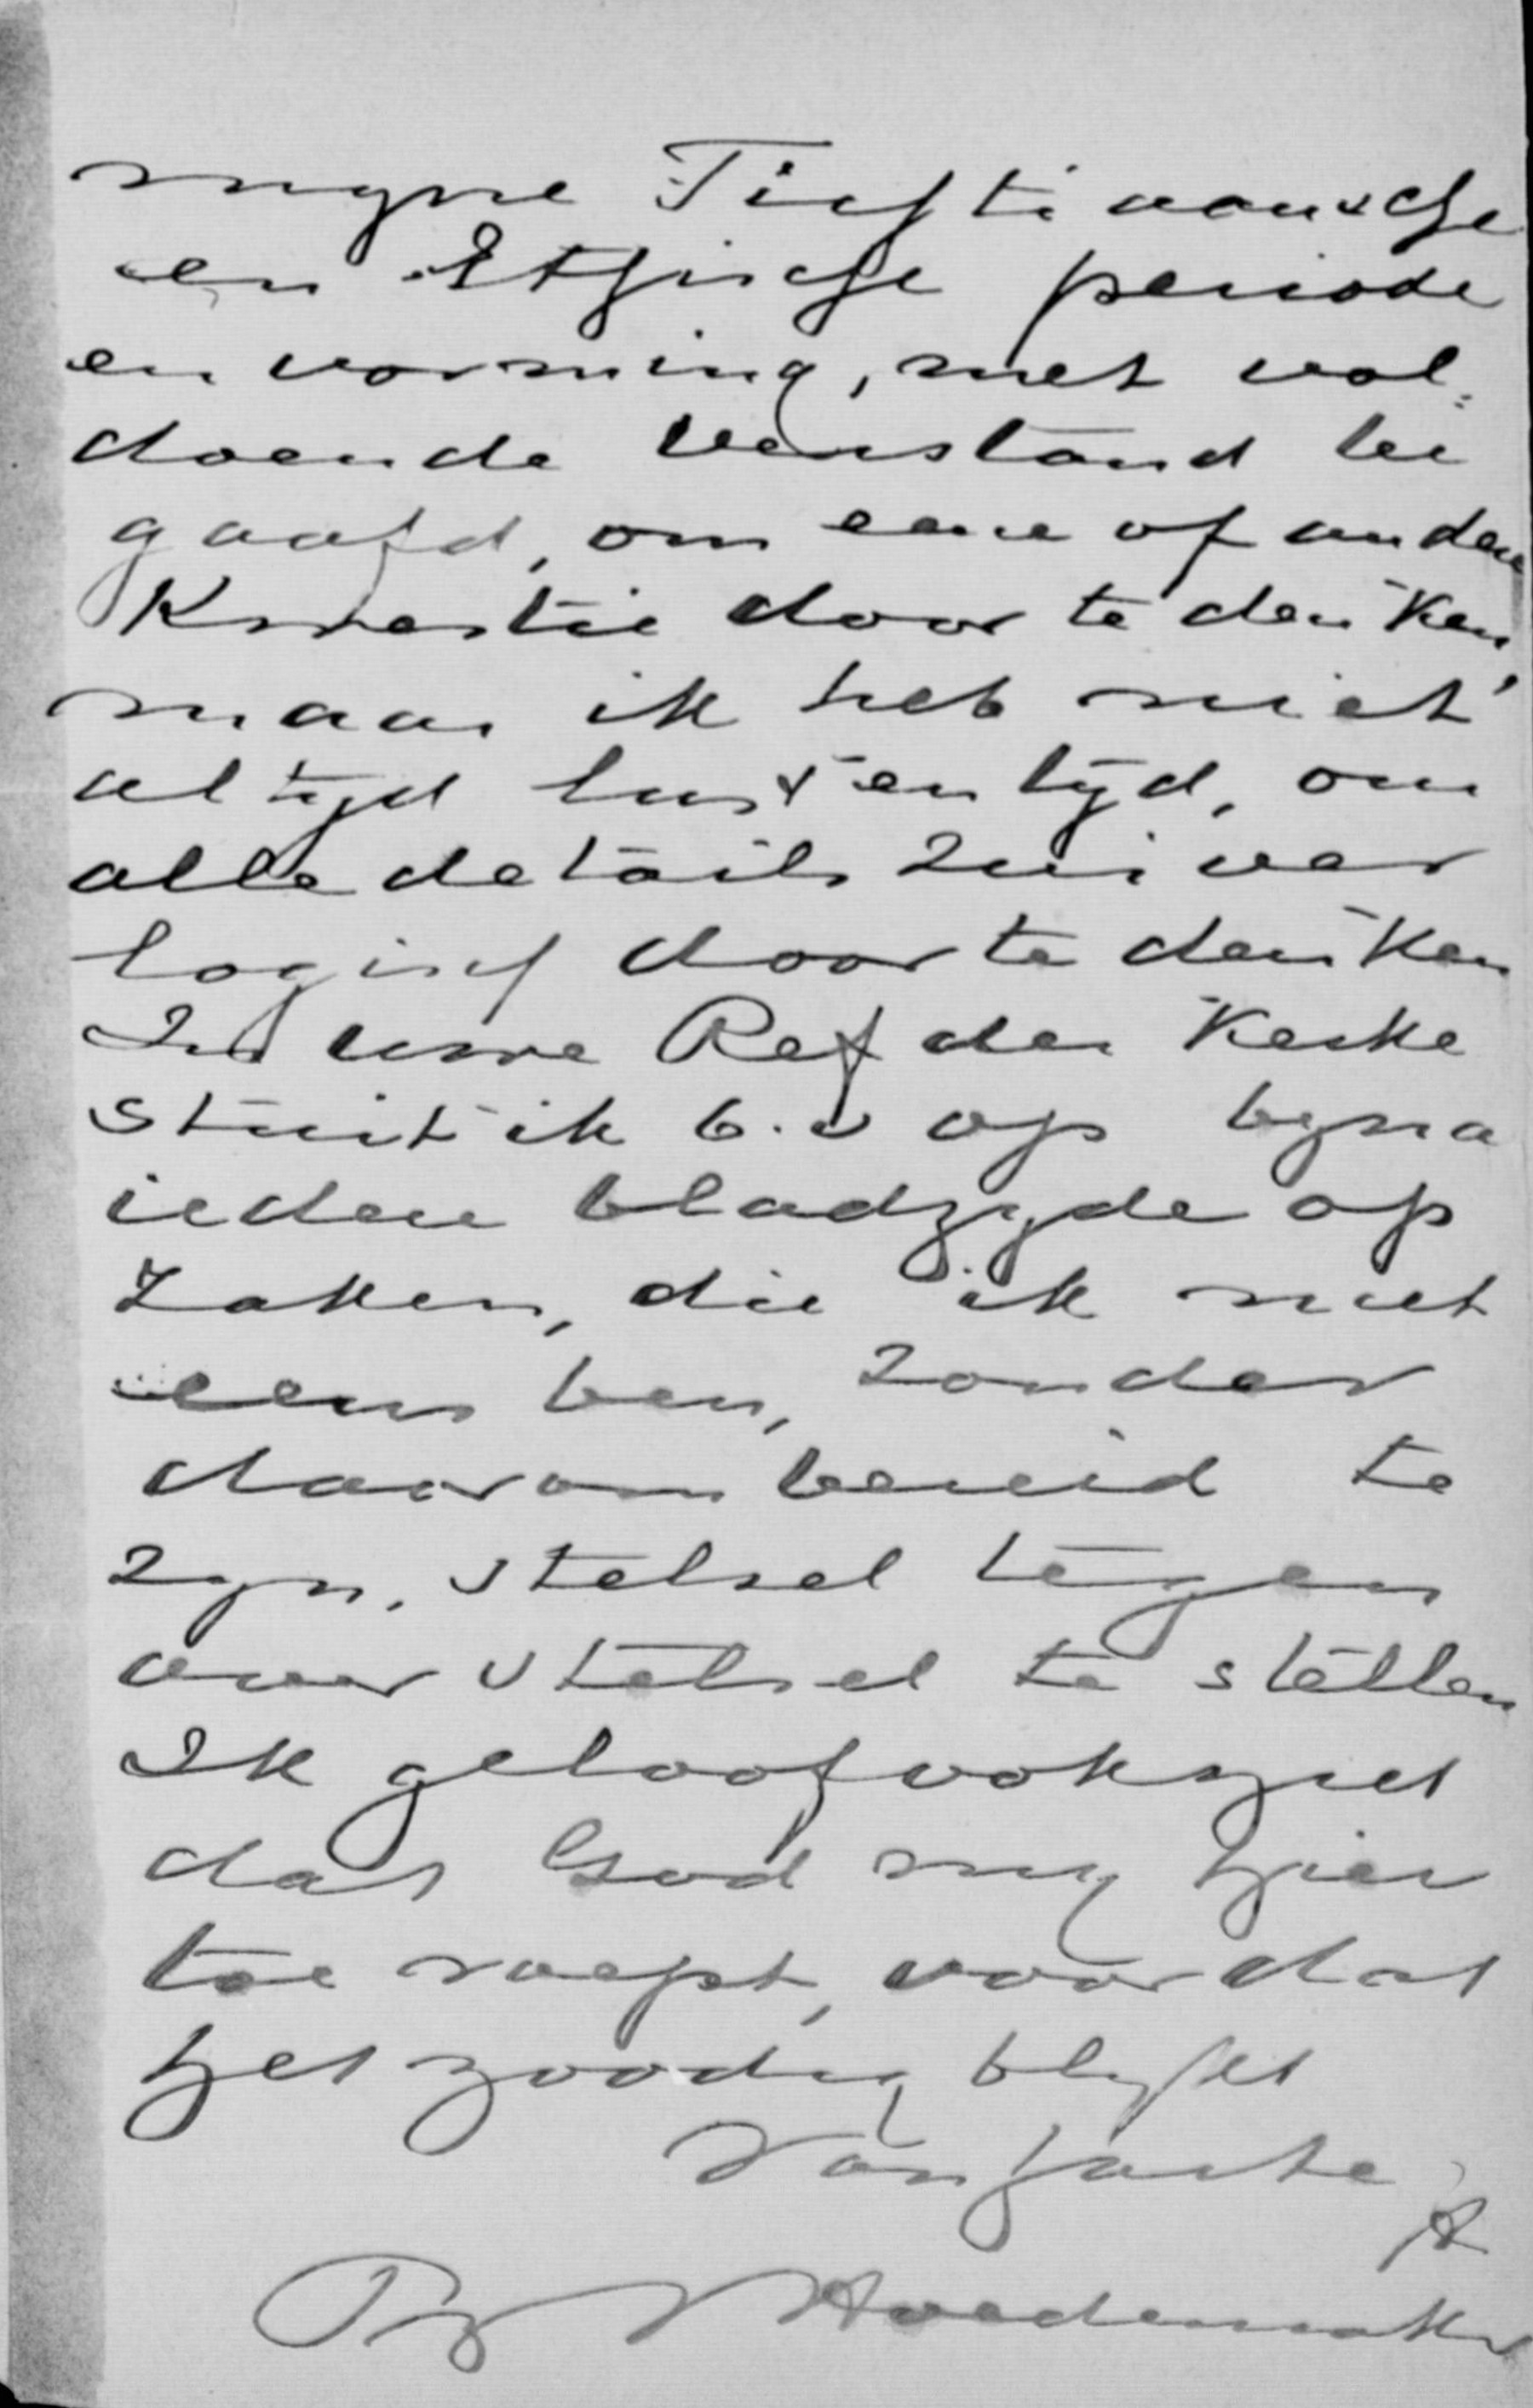 myne Fichtiaansche
en Ethische periode
en vorming, met vol=
doende verstand be
gaafd, om eene of andere
Kwestie door te denken,
maar ik heb niet
altyd lust en tyd, om
alle details zuiver
logisch door te denken
In uwe Ref der Kerke
stuit ik b.v op byna
iedere bladzyde op
Zaken, die ik niet
eens ben, zonder
daarom bereid te
zyn, stelsel tegen
over stelsel te stellen
Ik geloof ook niet
dat God my hier
toe roept, voor dat
het noodig blykt
Van harte
Ph J Hoedemaker